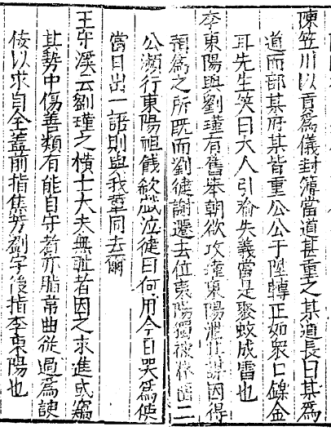 陳笠川以貢爲儀封簿當道甚重之某道長曰某爲
道而部某府某皆重公公于陞轉正如衆口鑠金
耳先生笑曰大人引喻失義當是聚蚊成雷也
李東陽與劉瑾有舊舉朝欲攻瑾東陽洩其謀因得
預爲之所既而劉健謝遷去位東陽獨被眷留二
公瀕行東陽祖餞歔欷泣健曰何用今日哭爲使
當日出一語則與我輩同去爾
王守溪云劉瑾之橫士大夫無恥者因之求進或竊
其勢中傷善類有能自守者亦脂韋曲從過爲諛
佞以求自全蓋前指焦芳劉宇後指李東陽也